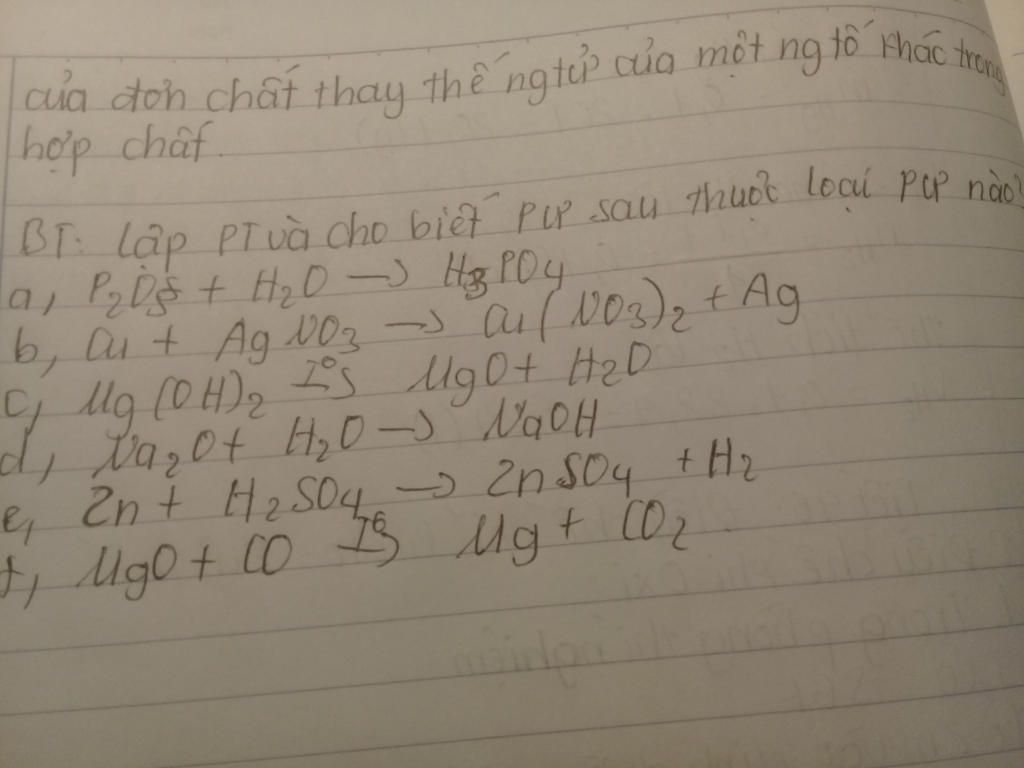 của đơn chất thay thế ngtử của một ng tố khác trong
hợp chất.
BT: Lập PT và cho biết PƯ sau thuộc loại PƯ nào?
a, P2O5 + H2O → H3PO4
b, Cu + AgNO3 → Cu(NO3)2 + Ag
c, Mg(OH)2 t°→ MgO + H2O
d, Na2O + H2O → NaOH
e, Zn + H2SO4 → ZnSO4 + H2
f, MgO + CO t°→ Mg + CO2